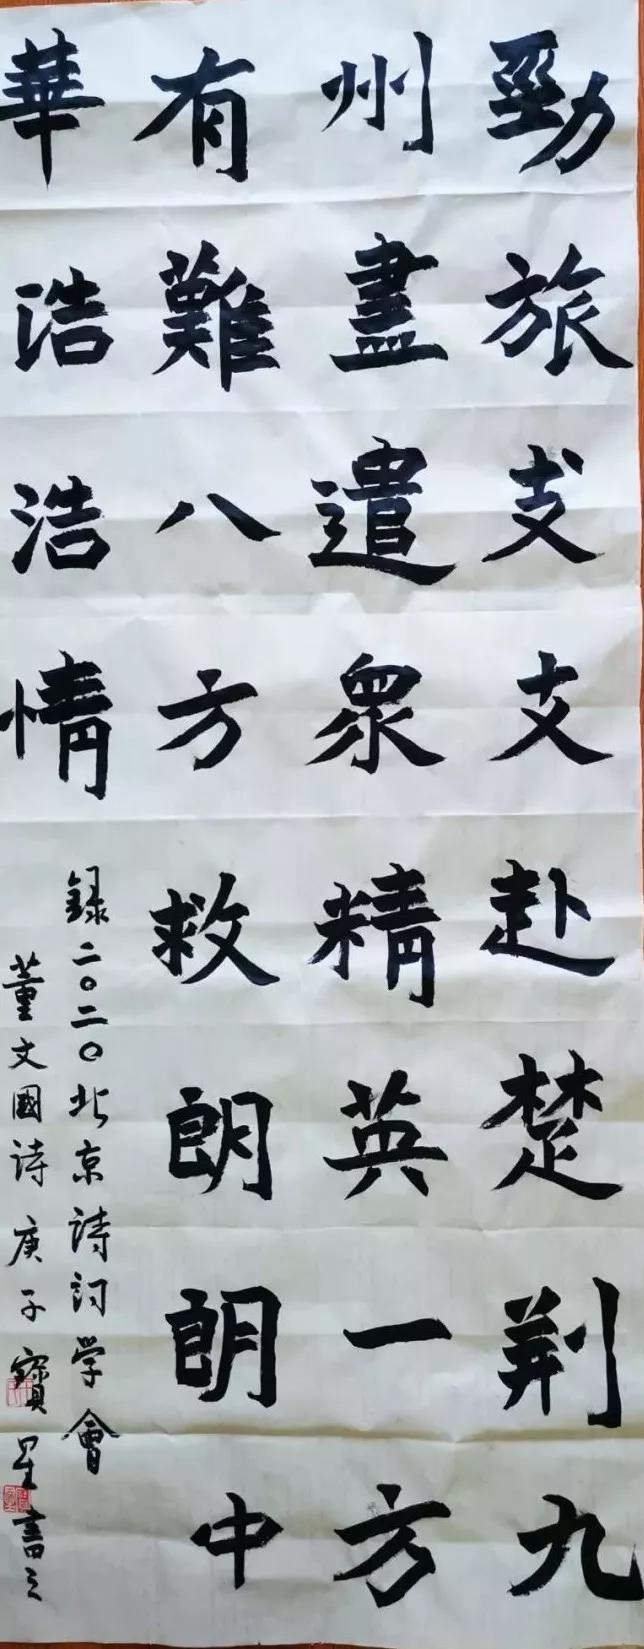 勁旅支支赴楚荆九
州盡遣衆精英一方
有難八方救朗朗中
華浩浩情
録二〇二〇北京詩詞学會
董文國詩庚子寶星書之